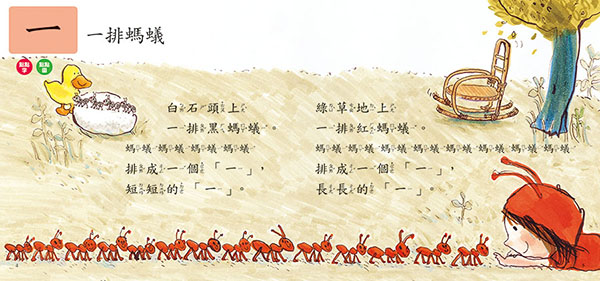 一
一排螞蟻
點點字
點點畫
白石頭上
一排黑螞蟻。
螞蟻螞蟻螞蟻螞蟻螞蟻
排成一個「一」，
短短的「一」。
綠草地上
一排紅螞蟻。
螞蟻螞蟻螞蟻螞蟻螞蟻螞蟻螞蟻
排成一個「一」，
長長的「一」。